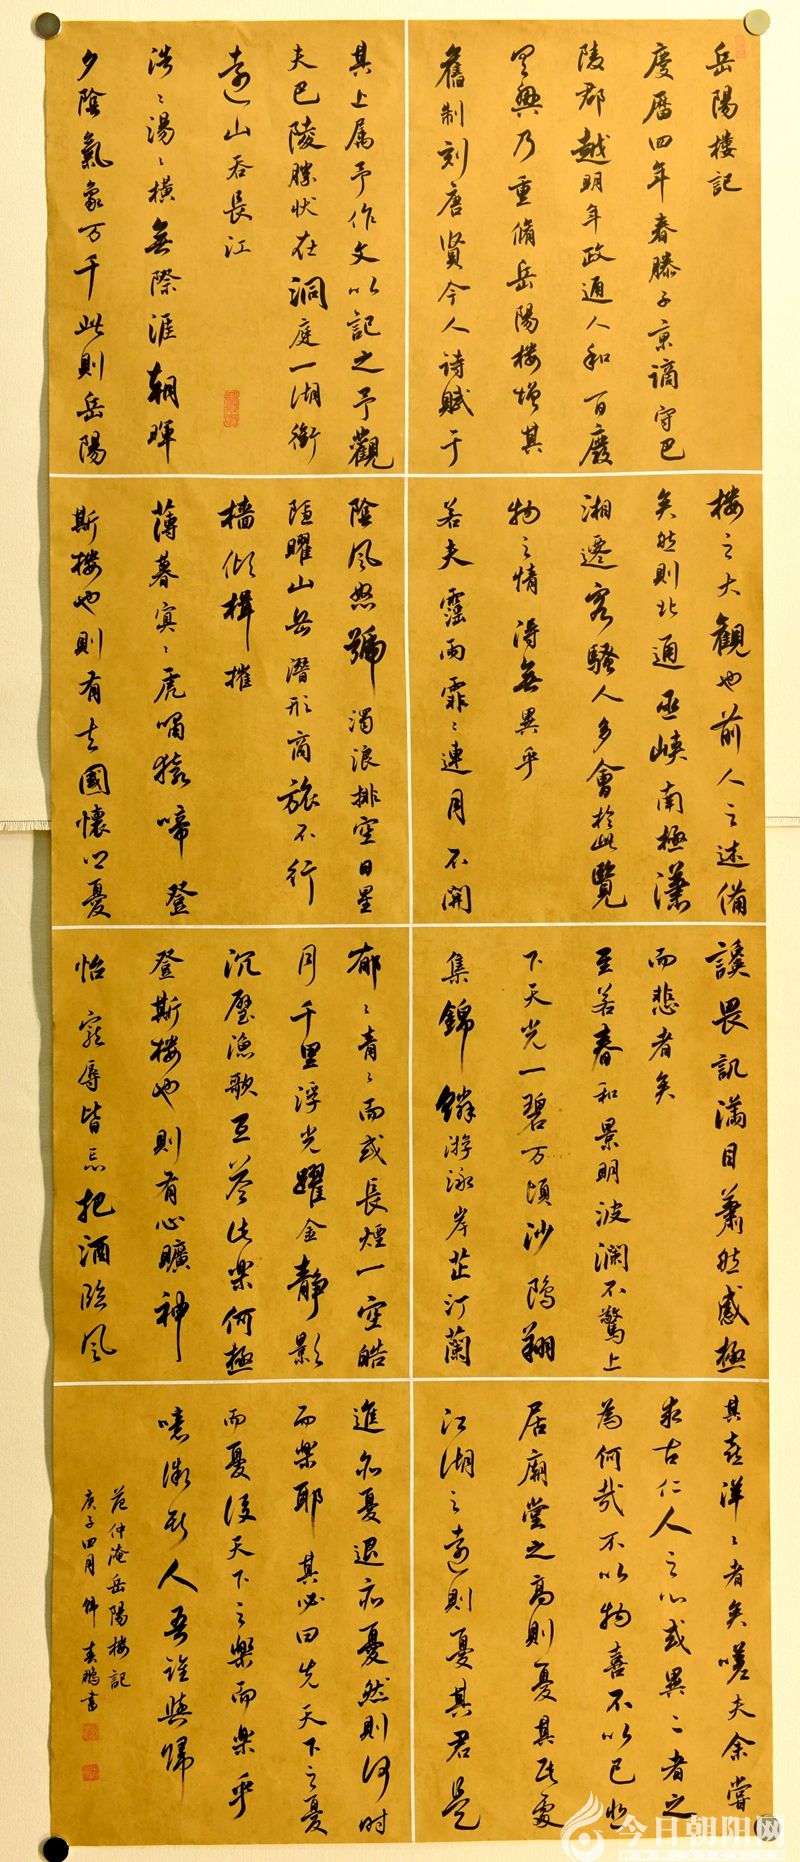 岳陽楼記
慶曆四年春滕子京謫守巴
陵郡越明年政通人和百廢
具興乃重脩岳陽楼增其
舊制刻唐賢今人诗賦于
其上属予作文以記之予觀
夫巴陵勝状在洞庭一湖銜
遠山吞長江
浩〻湯〻橫無際涯朝暉
夕陰氣象万千此則岳陽
楼之大觀也前人之述備
矣然則北通巫峽南極瀟
湘遷客騷人多會於此覽
物之情得無異乎
若夫霪雨霏〻連月不開
陰風怒號濁浪排空日星
隱曜山岳潛形商旅不行
檣傾楫摧
薄暮冥〻虎嘯猿啼登
斯楼也則有去國懷鄉憂
讒畏譏滿目蕭然感極
而悲者矣
至若春和景明波瀾不驚上
下天光一碧万頃沙鷗翔
集錦鱗游泳岸芷汀蘭
郁〻青〻而或長煙一空皓
月千里浮光耀金靜影
沉璧漁歌互答此樂何極
登斯楼也則有心曠神
怡寵辱皆忘把酒臨風
其喜洋〻者矣嗟夫余嘗
求古仁人之心或異二者之
為何哉不以物喜不以己悲
居廟堂之高則憂其民處
江湖之遠則憂其君是
進亦憂退亦憂然則何時
而樂耶其必曰先天下之憂
而憂後天下之樂而樂乎
噫微斯人吾誰與歸
范仲淹岳陽楼記
庚子四月 春鵬書
今日朝阳网